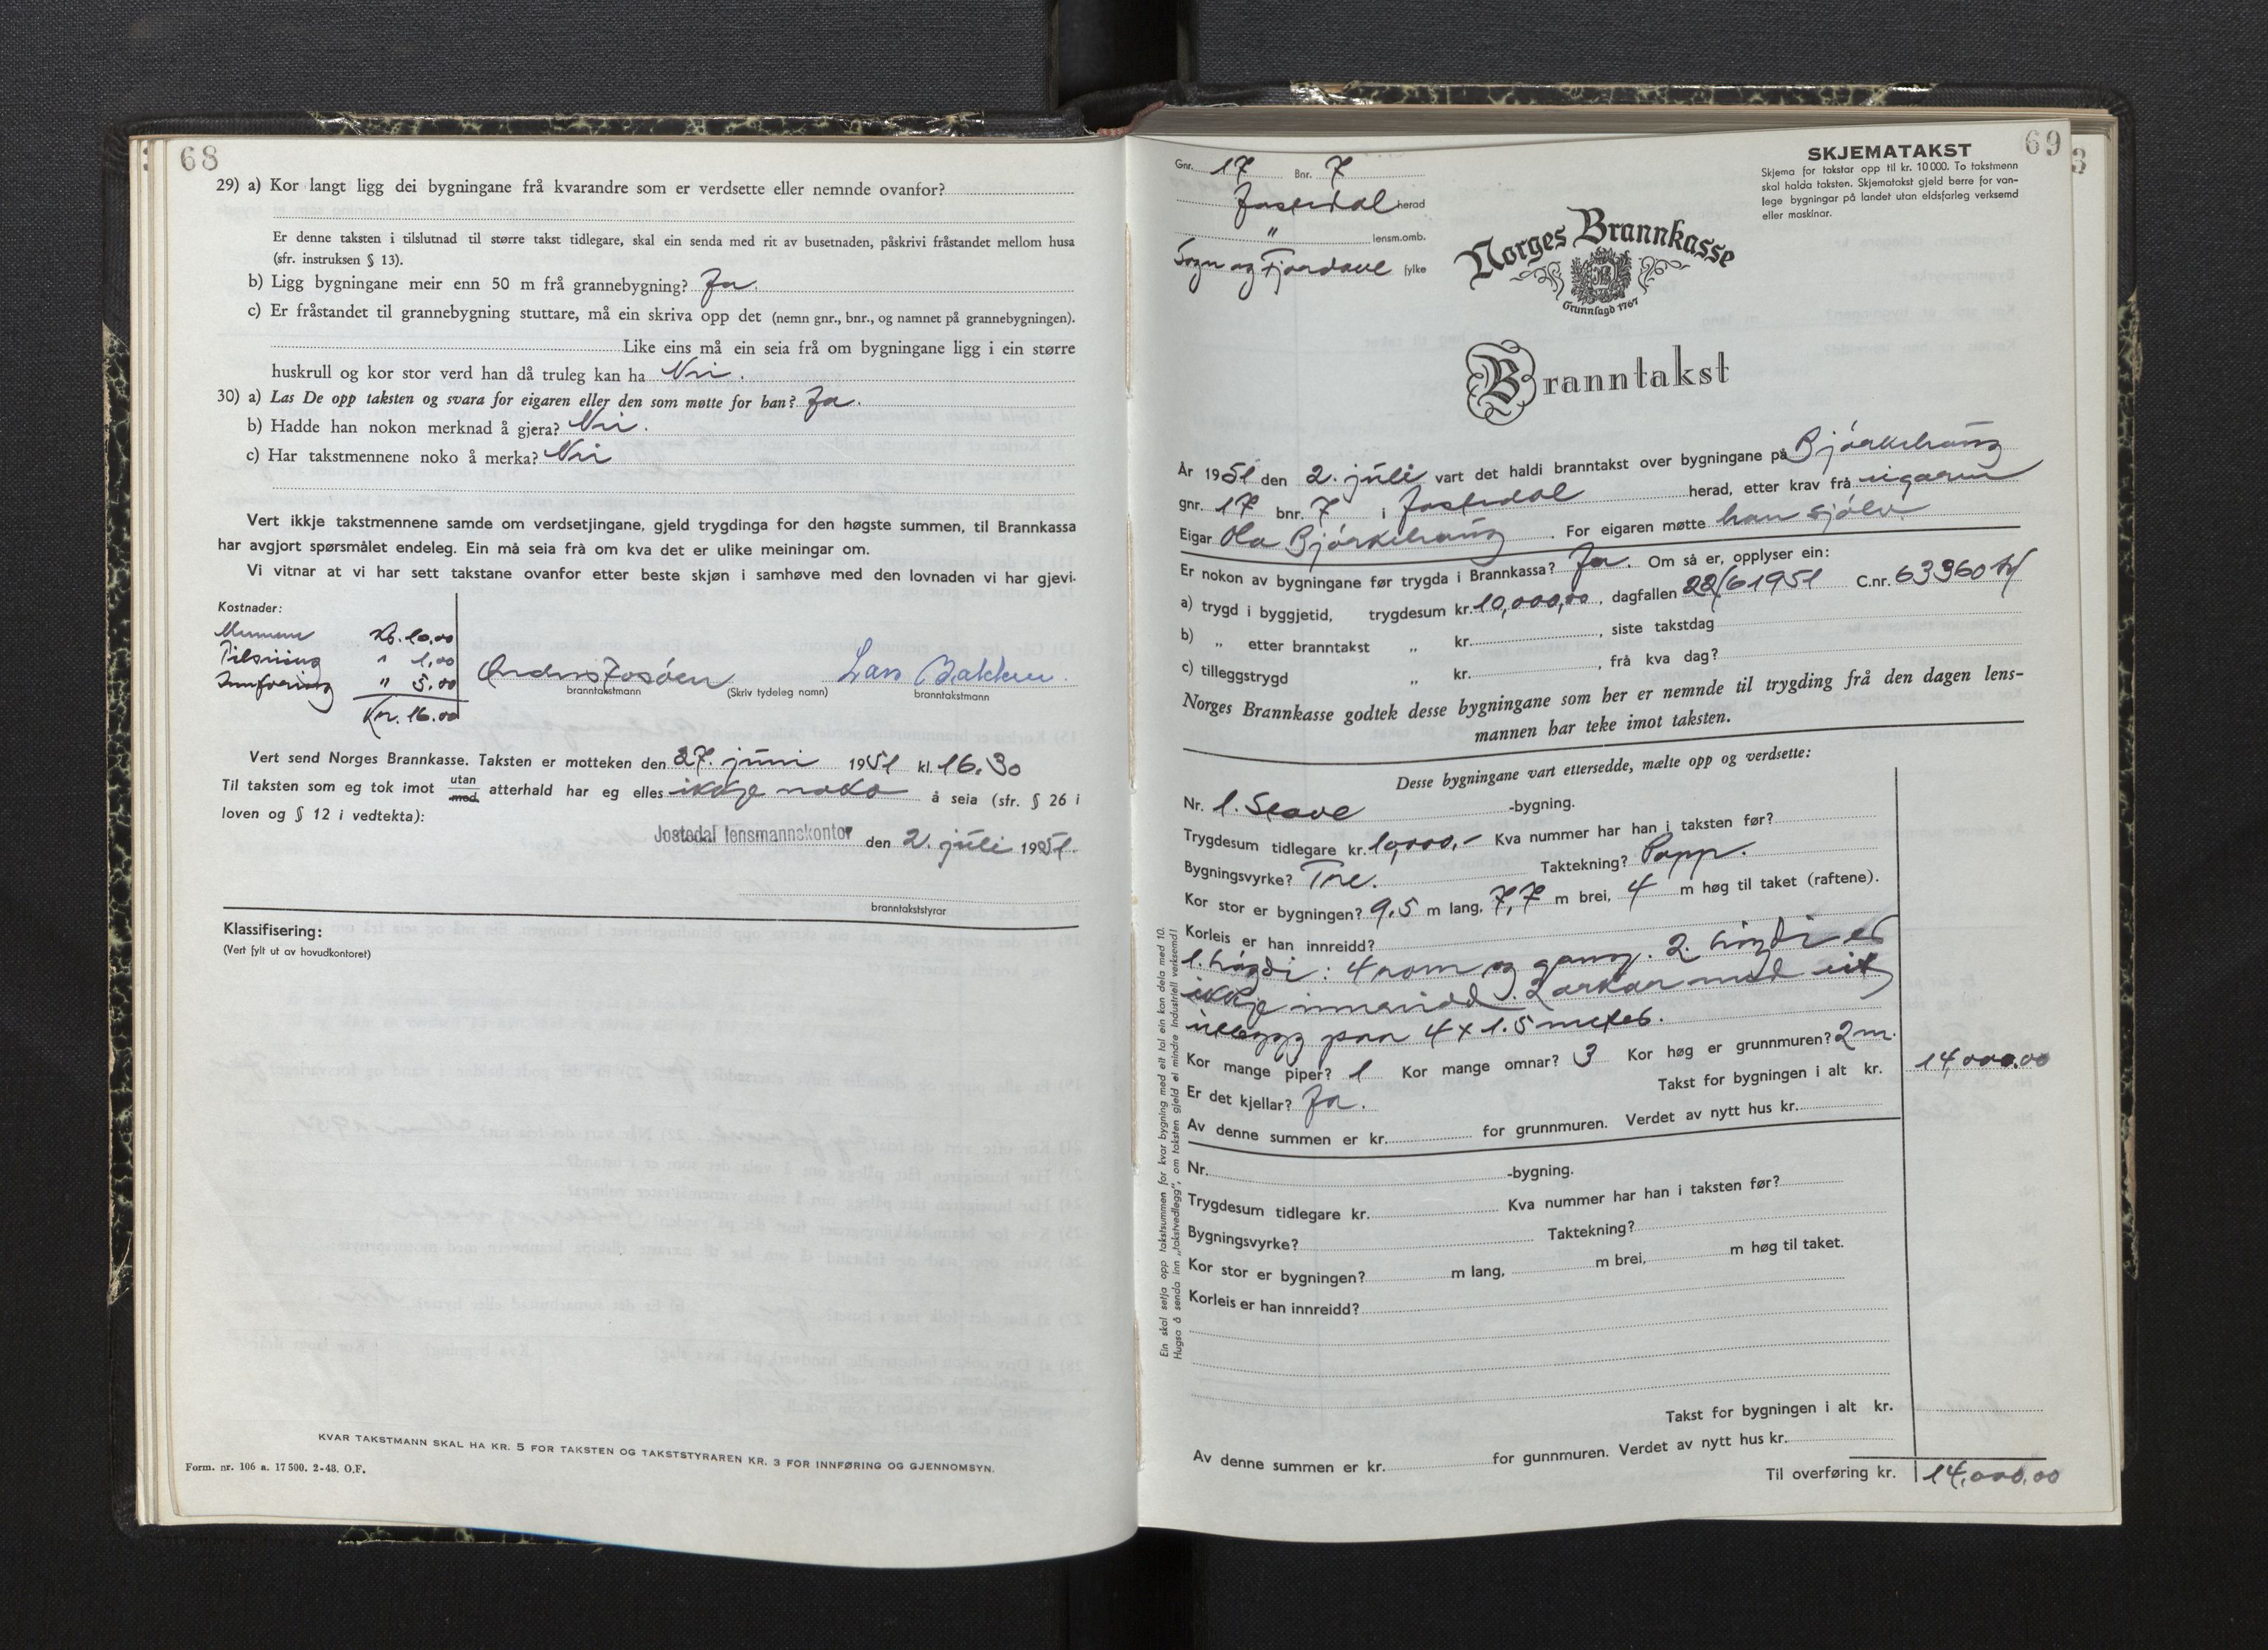 68
29) a) Kor langt ligg dei bygningane frå kvarandre som er verdsette eller nemnde ovanfor?
Er denne taksten i tilslutnad til større takst tidlegare, skal ein senda med rit av busetnaden, påskrivi fråstandet mellom husa
(sfr. instruksen § 13).
b) Ligg bygningane meir enn 50 m frå grannebygning? Ja.
c) Er fråstandet til grannebygning stuttare, må ein skriva opp det (nemn gnr., bnr., og namnet på grannebygningen).
Like eins må ein seia frå om bygningane ligg i ein større
huskrull og kor stor verd han då truleg kan ha Nei.
30) a) Las De opp taksten og svara for eigaren eller den som møtte for han? Ja.
b) Hadde han nokon merknad å gjera? Nei.
c) Har takstmennene noko å merka? Nei
Vert ikkje takstmennene samde om verdsetjingane, gjeld trygdinga for den høgste summen, til Brannkassa
har avgjort spørsmålet endeleg. Ein må seia frå om kva det er ulike meiningar om.
Vi vitnar at vi har sett takstane ovanfor etter beste skjøn i samhøve med den lovnaden vi har gjevi.
Kostnader:
Mennene Kr. 10.00
Tilsening " 1,00
Innføring " 5.00
Kr. 16.00
Lars Bakken.
branntakstmann (Skriv tydeleg namn) branntakstmann
Vert send Norges Brannkasse. Taksten er motteken den 27. juni 1951 kl. 16.30
Til taksten som eg tok imot utan med atterhald har eg elles ikkje noko å seia (sfr. § 26 i
loven og § 12 i vedtekta):
Jostedal lensmannskontor den 2. juli 1951.
branntakststyrar
Klassifisering:
(Vert fylt ut av hovudkontoret)
KVAR TAKSTMANN SKAL HA KR. 5 FOR TAKSTEN OG TAKSTSTYRAREN KR. 3 FOR INNFØRING OG GJENNOMSYN.
Form. nr. 106 a. 17 500. 2-48. O.F.
69
3
Gnr. 17 Bnr. 7
Jostedal herad
" lensm.omb.
Sogn og Fjordane fylke
SKJEMATAKST
Skjema for takstar opp til kr. 10 000. To takstmenn
skal halda taksten. Skjematakst gjeld berre for van-
lege bygningar på landet utan eldsfarleg verksemd
eller maskinar.
Norges Brannkasse
Grunnlagd 1767
Branntakst
År 1951 den 2. juli vart det haldi branntakst over bygningane på Bjørkehaug
gnr. 17 bnr. 7 i Jostedal herad, etter krav frå eigaren
Eigar Ola Bjørkehaug. For eigaren møtte han sjølv.
Er nokon av bygningane før trygda i Brannkassa? Ja. Om så er, opplyser ein:
a) trygd i byggjetid, trygdesum kr. 10,000,00, dagfallen 22/6 1951 C.nr. 63360
b) „ etter branntakst „ kr. , siste takstdag
c) tilleggstrygd „ kr. , frå kva dag?
Norges Brannkasse godtek desse bygningane som her er nemnde til trygding frå den dagen lens-
mannen har teke imot taksten.
Desse bygningane vart ettersedde, mælte opp og verdsette:
Nr. 1. Stove -bygning.
Trygdesum tidlegare kr. 10,000,- Kva nummer har han i taksten før?
Bygningsvyrke? Tre. Taktekning? Papp.
Kor stor er bygningen? 9.5 m lang, 7,7 m brei, 4 m høg til taket (raftene).
Korleis er han innreidd?
1. høgdi: 4 rom og gang. 2. høgdi er
ikkje innreidd. 2 arkar med eit
utbygg paa 4 x 1.5 meter.
Kor mange piper? 1 Kor mange omnar? 3 Kor høg er grunnmuren? 2 m.
Er det kjellar? Ja. Takst for bygningen i alt kr. 14,000.00
Av denne summen er kr. for grunnmuren. Verdet av nytt hus kr.
Nr. -bygning.
Trygdesum tidlegare kr. Kva nummer har han i taksten før?
Bygningsvyrke? Taktekning?
Kor stor er bygningen? m lang, m brei, m høg til taket.
Korleis er han innreidd?
Takst for bygningen i alt kr.
Av denne summen er kr. for gunnmuren. Verdet av nytt hus kr.
Til overføring kr. 14,000,00
Ein skal setja opp takstsummen for kvar bygning med eit tal ein kan dela med 10.
Hugsa å senda inn „takstvedlegg", om taksten gjeld ei mindre industriell verksemd!